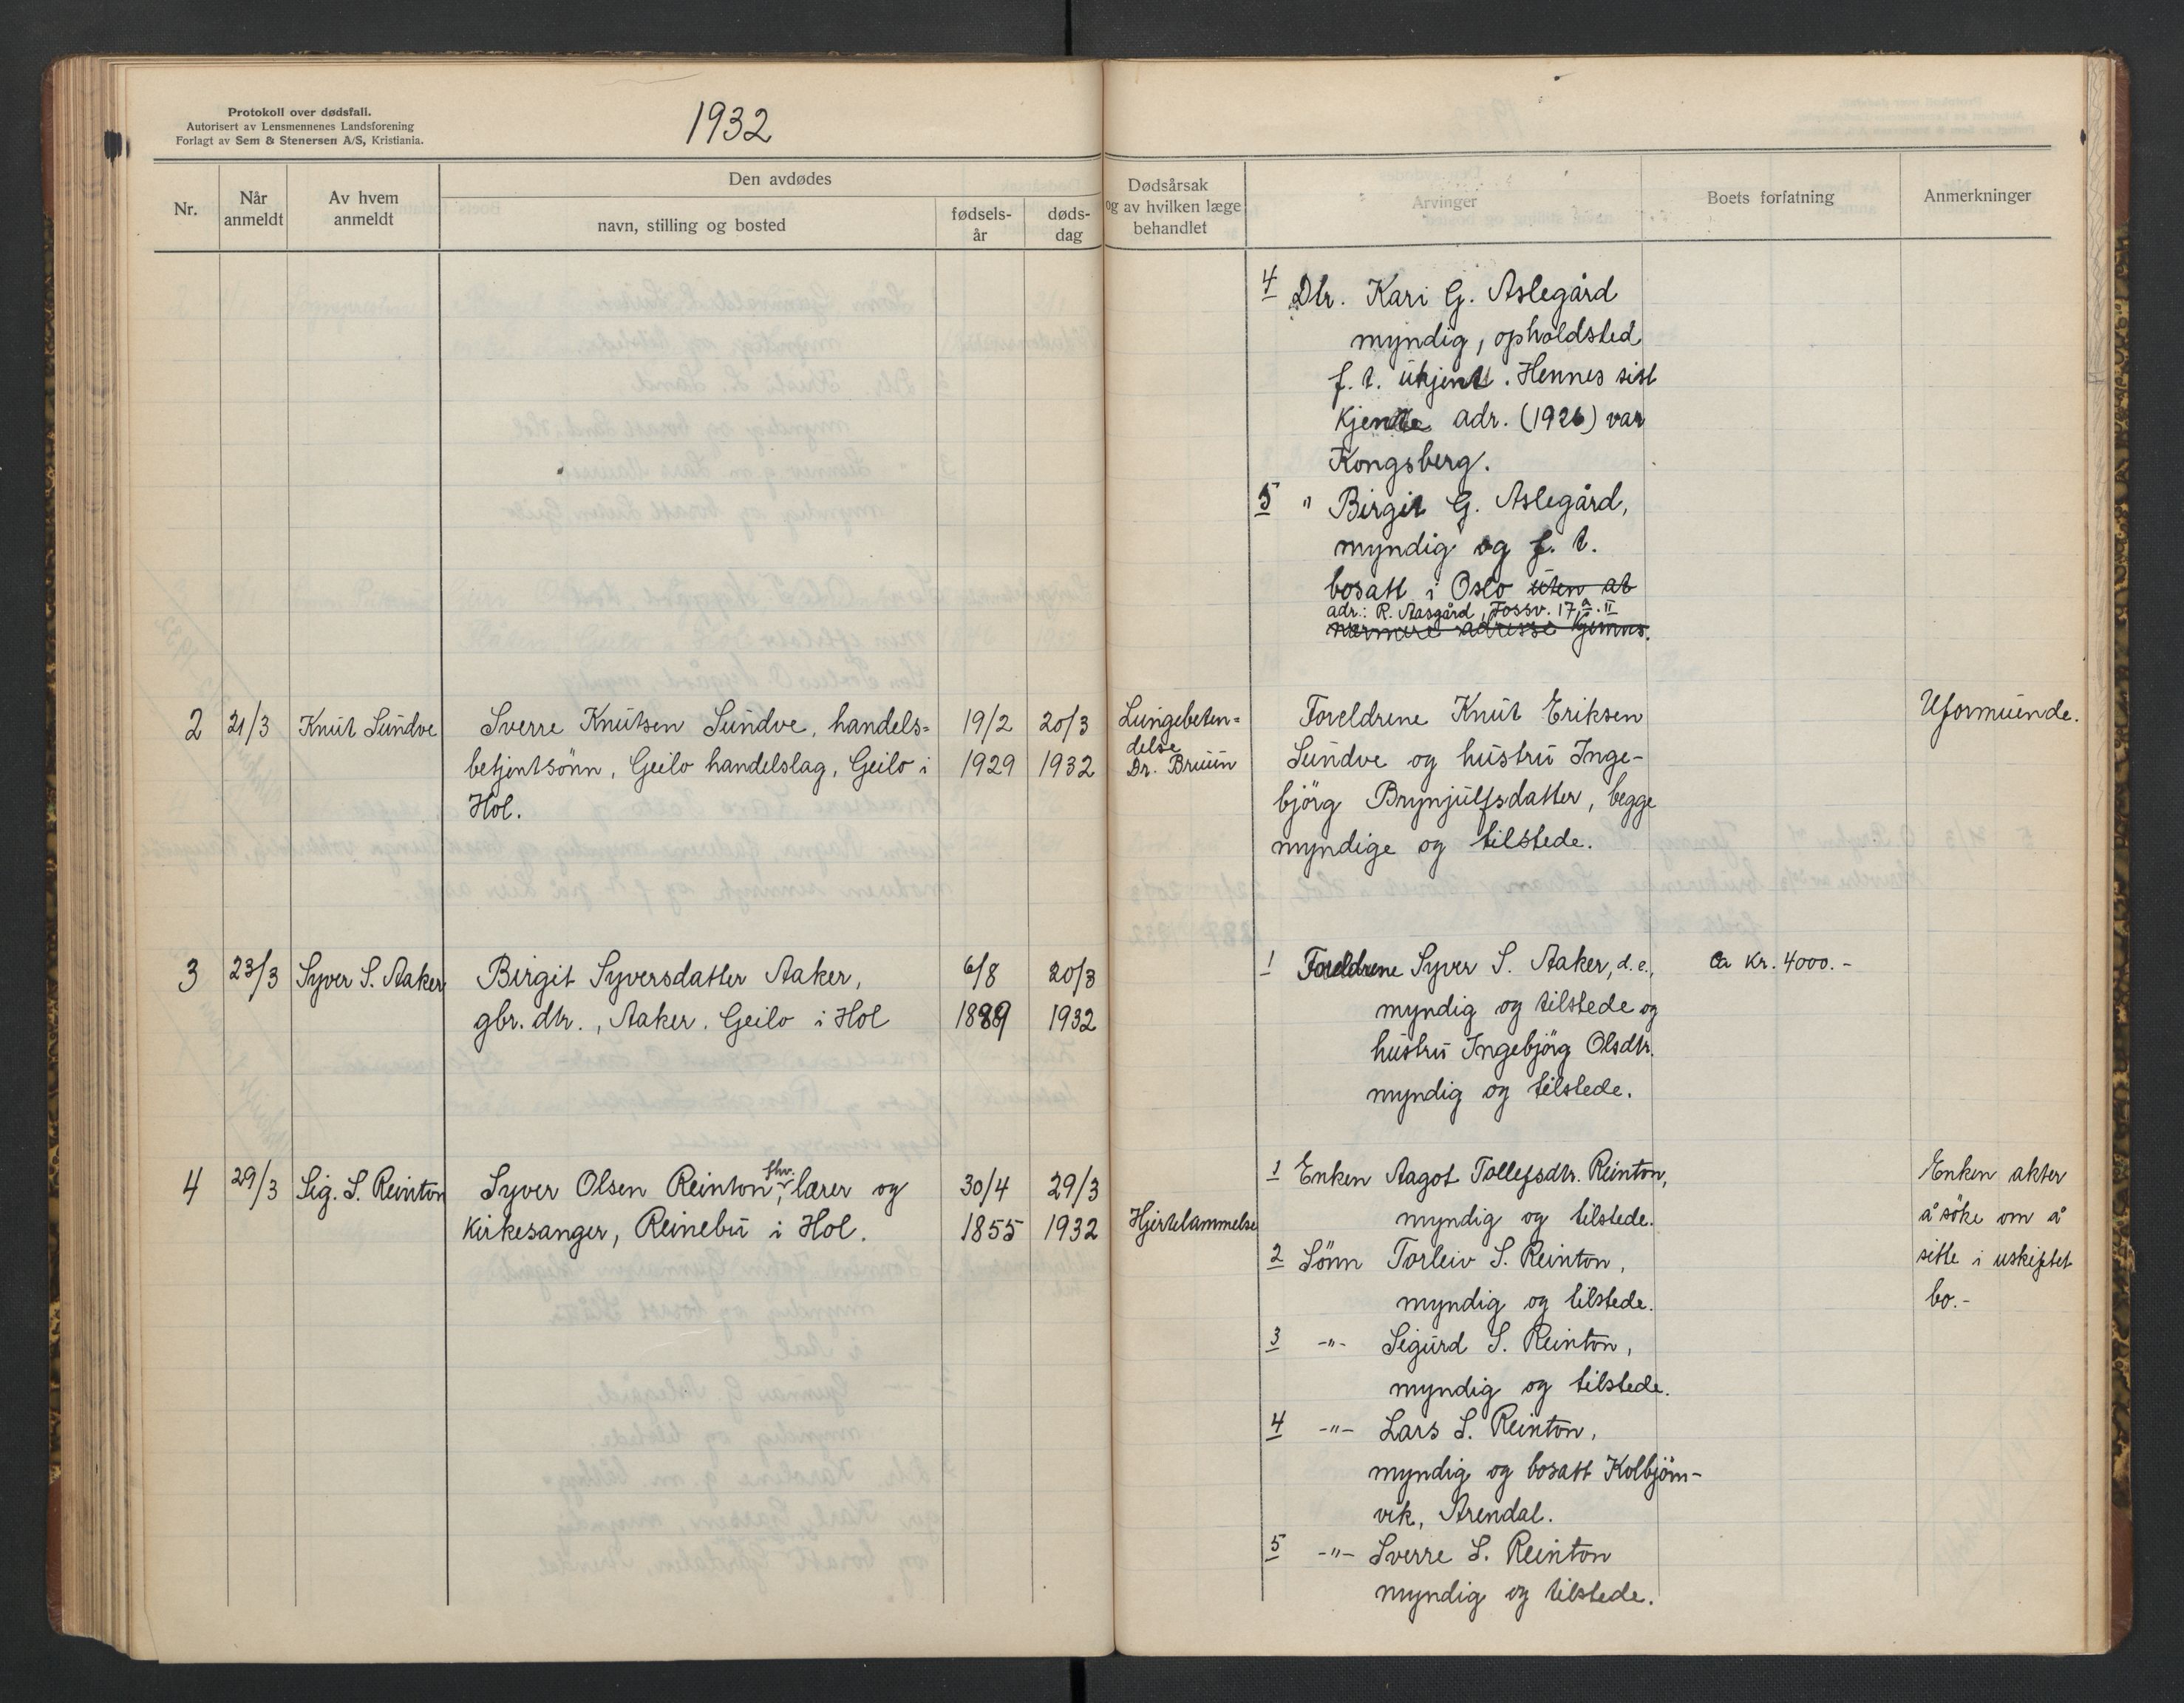 Protokoll over dødsfall.
Autorisert av Lensmennenes Landsforening
Forlagt av Sem & Stenersen A/S, Kristiania.
1932
Nr.
Når anmeldt
Av hvem anmeldt
Den avdødes
navn, stilling og bosted
fødsels-år
døds-dag
Dødsårsak og av hvilken læge behandlet
Arvinger
Boets forfatning
Anmerkninger
4 Dtr. Kari G. Aslegård
myndig, opholdsted
f. t. ukjent. Hennes sist
kjente adr. (1926) var
Kongsberg.
5 " Birgit G. Aslegård,
myndig og f. t.
bosatt i Oslo uten at
adr.: R. Aasgård, Fossv. 17a. II
nærmere adresse kjennes.
2 21/3 Knut Sundve
Sverre Knutsen Sundve, handels=
betjentsönn, Geilo handelslag, Geilo i
Hol.
19/2
1929
20/3
1932
Lungebeten=
delse
Dr. Bruun
Foreldrene Knut Eriksen
Sundve og hustru Inge-
björg Brynjulfsdatter, begge
myndige og tilstede.
Uformuende.
3 23/3 Syver S. Aaker
Birgit Syversdatter Aaker,
gbr. dtr., Aaker, Geilo i Hol
6/8
1889
20/3
1932
1 Foreldrene Syver S. Aaker, d. e.,
myndig og tilstede og
hustru Ingebjörg Olsdtr.
myndig og tilstede.
Ca kr. 4000.-
4 29/3 Sig. S. Reinton
Syver Olsen Reinton, fhv. lærer og
kirkesanger, Reinebu i Hol.
30/4
1855
29/3
1932
Hjertelammelse
1 Enken Aagot Tollefsdtr. Reinton,
myndig og tilstede.
2 Sönn Torleiv S. Reinton,
myndig og tilstede.
3 -"- Sigurd S. Reinton,
myndig og tilstede.
4 -"- Lars S. Reinton,
myndig og bosatt Kolbjörn-
vik, Arendal.
5 -"- Sverre S. Reinton
myndig og tilstede.
Enken akter
å söke om å
sitte i uskiftet
bo.-